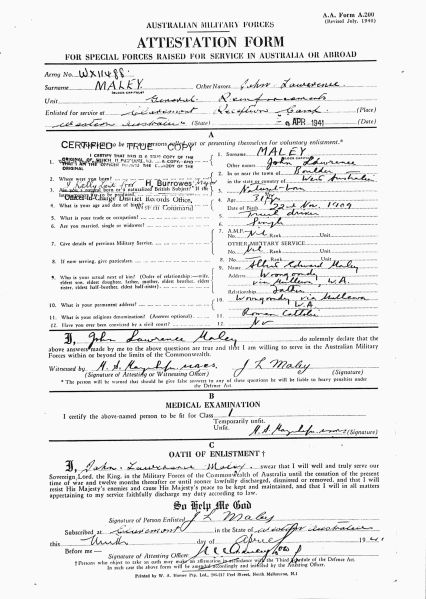 A.A. Form A.200
(Revised July, 1940)
AUSTRALIAN MILITARY FORCES
ATTESTATION FORM
FOR SPECIAL FORCES RAISED FOR SERVICE IN AUSTRALIA OR ABROAD
Army No. WX11488
Surname MALEY Other Names John Lawrence
(BLOCK CAPITALS)
Unit General Reinforcements
Enlisted for service at Claremont Reception Camp (Place)
Western Australia (State) 9 APR 1941
A
CERTIFIED TRUE COPY
I CERTIFY THAT THIS IS A TRUE COPY OF THE
H. Burrowes
Officer in Charge District Records Office,
1. Surname MALEY
Other names John Lawrence
2. In or near the town of
in the state or country of West Australia
3. Natural-born
4. What is your age and date of birth?
4. Age 31
Date of Birth 22nd Nov. 1909
5. What is your trade or occupation?
5. Truck driver
6. Are you married, single or widower?
6. Single
7. Give details of previous Military Service.
7. A.M.F.
No. Nil Rank Unit
OTHER MILITARY SERVICE
No. Nil Rank Unit
8. If now serving, give particulars.
8. No. Rank Unit
9. Who is your actual next of kin? (Order of relationship:—wife, eldest son, eldest daughter, father, mother, eldest brother, eldest sister, eldest half-brother, eldest half-sister).
9. Name Albert Edward Maley
Address Wongoondy
via Mullewa, W.A.
Relationship Father
10. What is your permanent address?
10. Wongoondy via Mullewa
W.A.
11. What is your religious denomination? (Answer optional).
11. Roman Catholic
12. Have you ever been convicted by a civil court?
12. No
I, John Lawrence Maley do solemnly declare that the
above answers made by me to the above questions are true and that I am willing to serve in the Australian Military
Forces within or beyond the limits of the Commonwealth.
Witnessed by J L Maley
(Signature of Attesting or Witnessing Officer) (Signature)
* The person will be warned that should he give false answers to any of these questions he will be liable to heavy penalties under
the Defence Act.
B
MEDICAL EXAMINATION
I certify the above-named person to be fit for Class 1
Temporarily unfit.
Unfit.
(Signature)
C
OATH OF ENLISTMENT†
I, John Lawrence Maley swear that I will well and truly serve our
Sovereign Lord, the King, in the Military Forces of the Commonwealth of Australia until the cessation of the present
time of war and twelve months thereafter or until sooner lawfully discharged, dismissed or removed, and that I will
resist His Majesty's enemies and cause His Majesty's peace to be kept and maintained, and that I will in all matters
appertaining to my service faithfully discharge my duty according to law.
So Help Me God
Signature of Person Enlisted J L Maley
Subscribed at Claremont in the State of Western Australia
this Ninth day of April 1941
Before me—
Signature of Attesting Officer
† Persons who object to take an oath may make an affirmation in accordance with the Third Schedule of the Defence Act.
In such case the above form will be amended accordingly and initialed by the Attesting Officer.